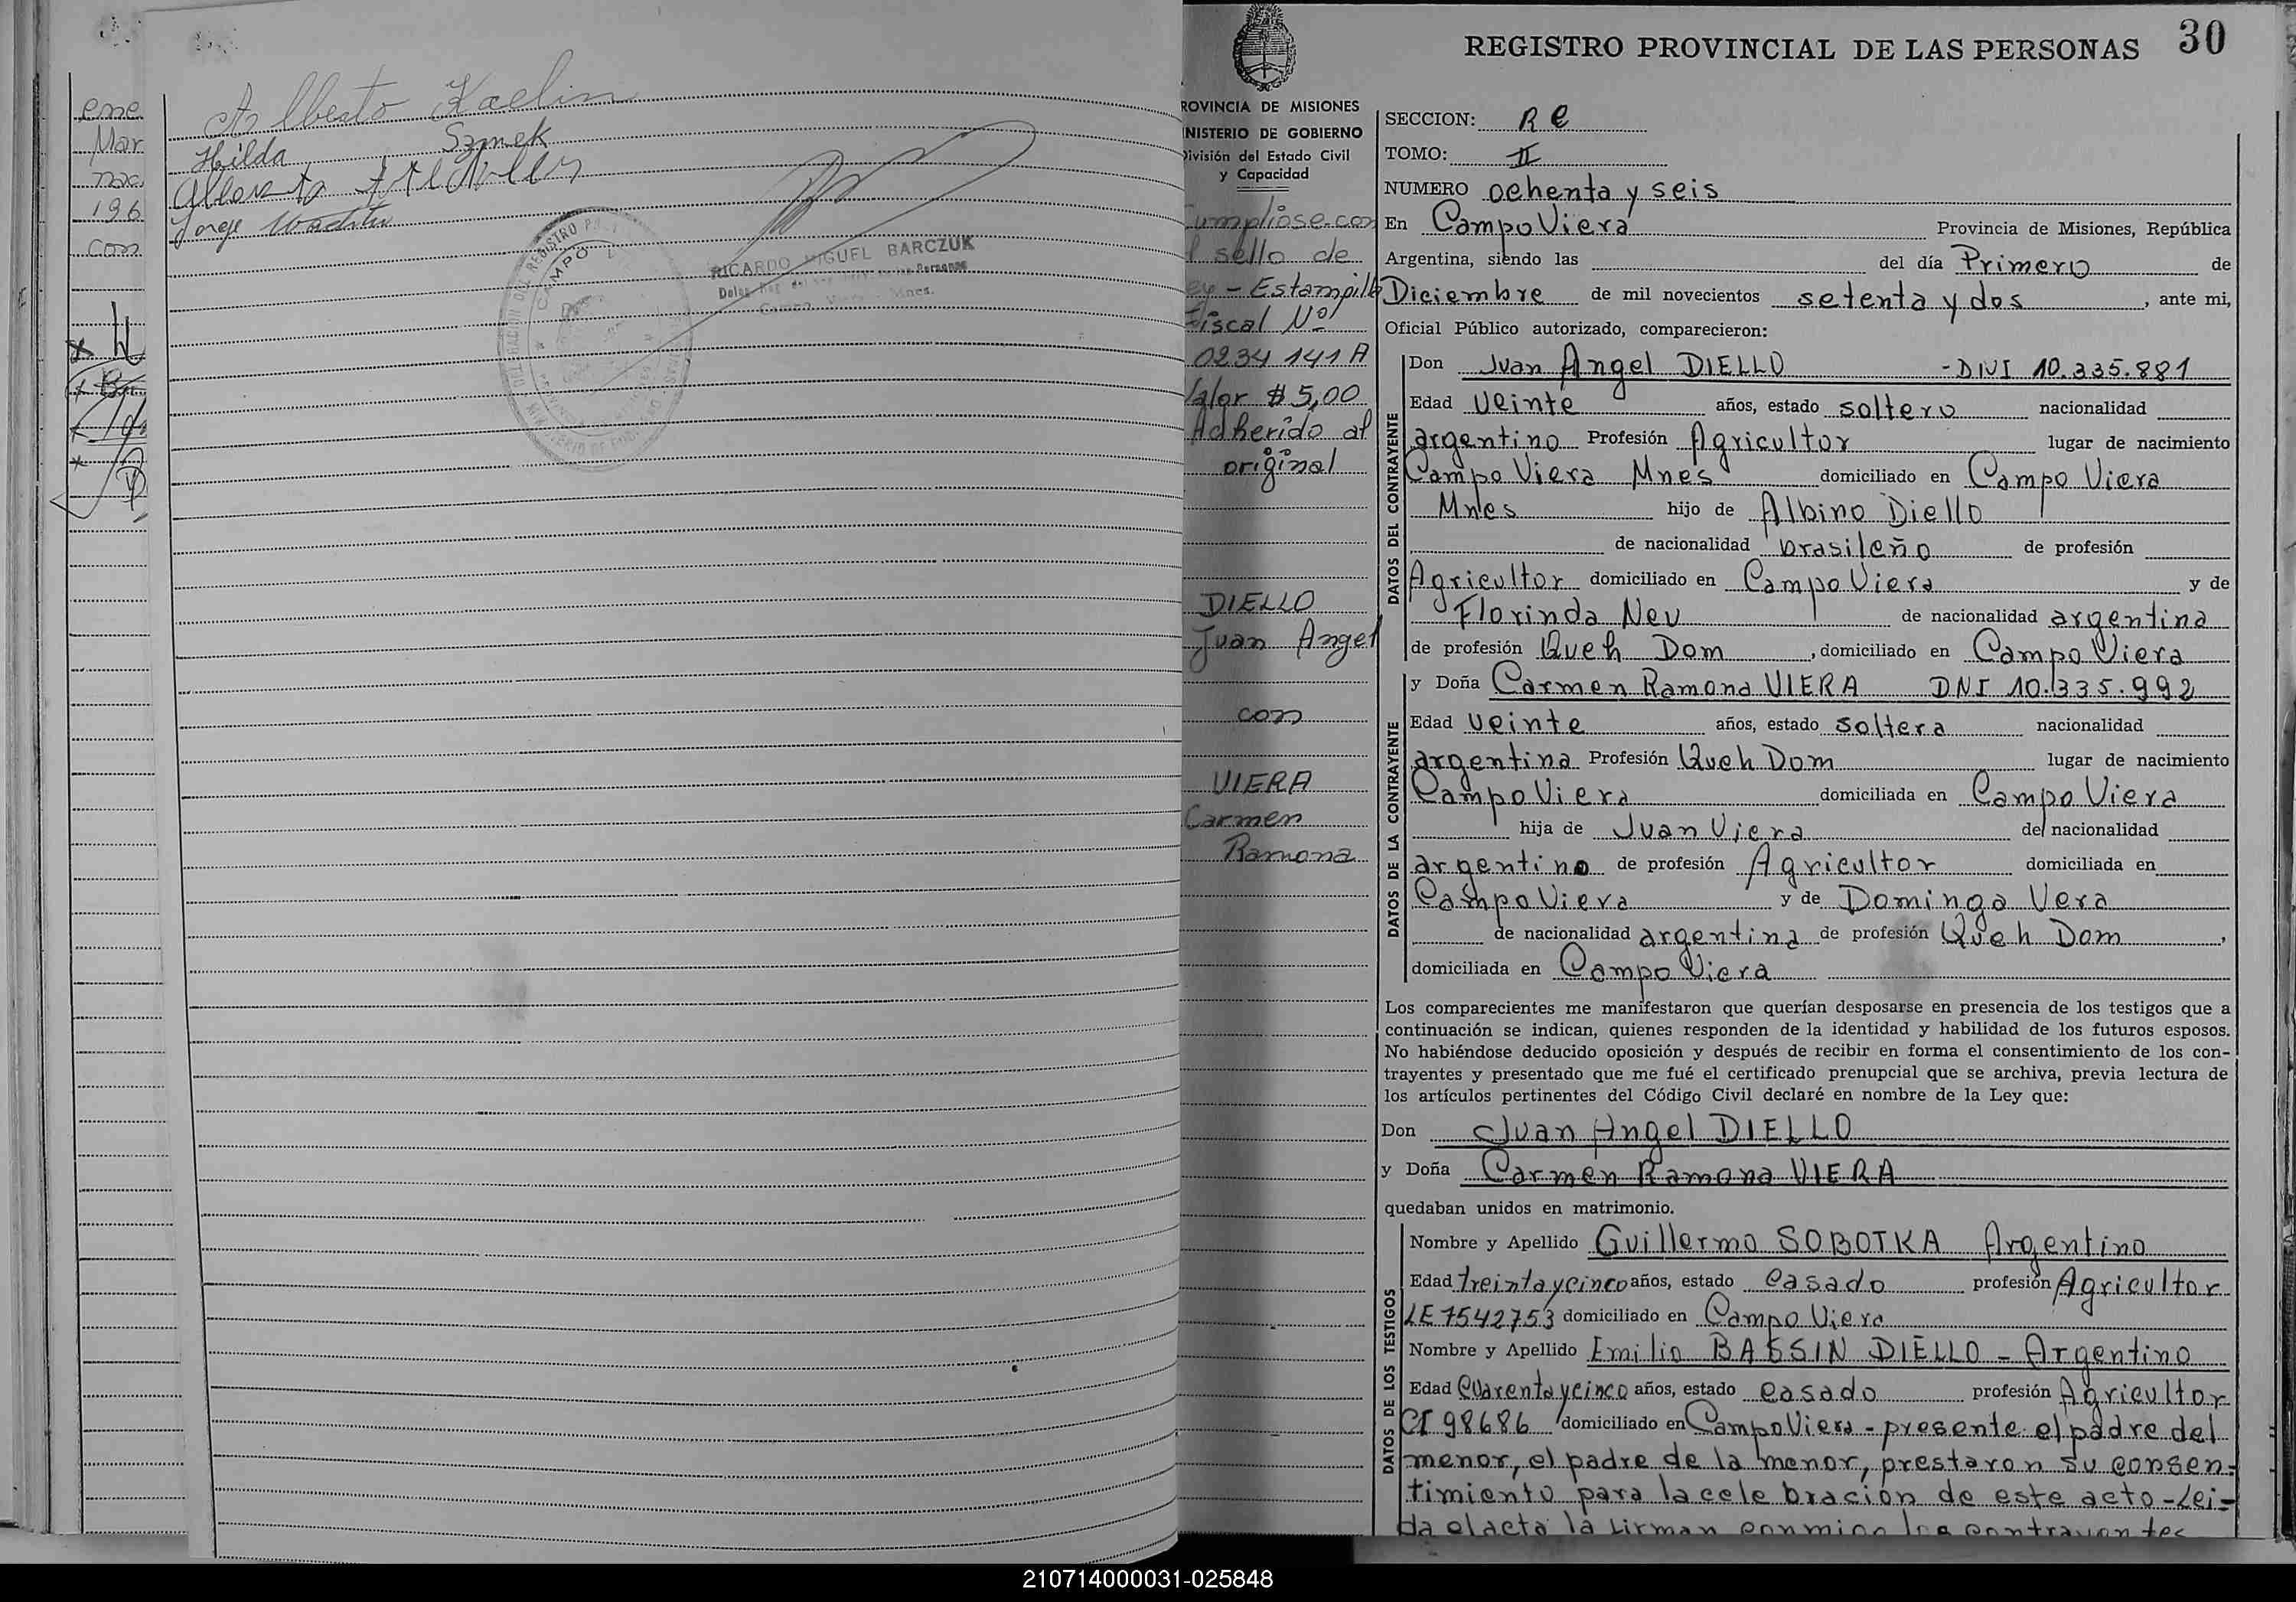 ene
Mar
nac
196
con
Alberto Kaelin
Hilda Szmek
Jorge
RICARDO MIGUEL BARCZUK
REGISTRO PROVINCIAL DE LAS PERSONAS 30
PROVINCIA DE MISIONES
MINISTERIO DE GOBIERNO
División del Estado Civil
y Capacidad
Cumpliose con
el sello de
Ley - Estampilla
Fiscal Nº
0234 141 A
Valor $ 5,00
Adherido al
original
DIELLO
Juan Angel
con
VIERA
Carmen
Ramona
SECCION: R e
TOMO: II
NUMERO ochenta y seis
En Campo Viera Provincia de Misiones, República
Argentina, siendo las del día Primero de
Diciembre de mil novecientos setenta y dos, ante mi,
Oficial Público autorizado, comparecieron:
DATOS DEL CONTRAYENTE
Don Juan Angel DIELLO - DNI 10.335.881
Edad veinte años, estado soltero nacionalidad
argentino Profesión Agricultor lugar de nacimiento
Campo Viera Mnes domiciliado en Campo Viera
Mnes hijo de Albino Diello
de nacionalidad brasileño de profesión
Agricultor domiciliado en Campo Viera y de
Florinda Neu de nacionalidad argentina
de profesión Queh Dom, domiciliado en Campo Viera
DATOS DE LA CONTRAYENTE
y Doña Carmen Ramona VIERA DNI 10.335.992
Edad veinte años, estado soltera nacionalidad
argentina Profesión Queh Dom lugar de nacimiento
Campo Viera domiciliada en Campo Viera
hija de Juan Viera de nacionalidad
argentino de profesión Agricultor domiciliada en
Campo Viera y de Dominga Vera
de nacionalidad argentina de profesión Queh Dom,
domiciliada en Campo Viera
Los comparecientes me manifestaron que querían desposarse en presencia de los testigos que a
continuación se indican, quienes responden de la identidad y habilidad de los futuros esposos.
No habiéndose deducido oposición y después de recibir en forma el consentimiento de los con-
trayentes y presentado que me fué el certificado prenupcial que se archiva, previa lectura de
los artículos pertinentes del Código Civil declaré en nombre de la Ley que:
Don Juan Angel DIELLO
y Doña Carmen Ramona VIERA
quedaban unidos en matrimonio.
DATOS DE LOS TESTIGOS
Nombre y Apellido Guillermo SOBOTKA Argentino
Edad treinta y cinco años, estado casado profesión Agricultor
LE 7542753 domiciliado en Campo Viera
Nombre y Apellido Emilio BASSIN DIELLO - Argentino
Edad Cuarenta y cinco años, estado casado profesión Agricultor
CI 98686 domiciliado en Campo Viera - presente el padre del
menor, el padre de la menor, prestaron su consen-
timiento para la cele bración de este acto - Lei-
da el acta la firman conmigo los contrayentes
210714000031-025848